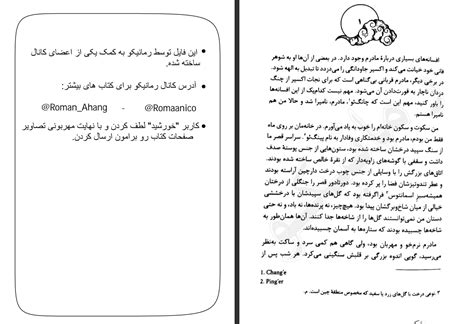 ۱
افسانه‌های بسیاری دربارهٔ مادرم وجود دارد. در بعضی از آن‌ها او به شوهر
فانی خود خیانت می‌کند و اکسیر جاودانگی را می‌دزدد تا تبدیل به الهه شود.
در برخی دیگر، مادرم قربانی بی‌گناهی است که برای نجات اکسیر از چنگ
دزدان ناچار به فوردادن آن می‌شود. مهم نیست کدام‌یک از این افسانه‌ها
را باور کنید، مهم این است که چانگ‌ئر۱، مادرم، نامیرا شد و حالا من هم
نامیرا هستم.
من سکوت و سکون خانه‌ام را خوب به یاد می‌آورم. در خانه‌مان بر روی ماه
فقط من بودم، مادرم بود و خدمتکاری وفادار به نام پینگ‌ئر۲. سراسر قصر ما
از سنگ سپید درخشان ساخته شده بود، ستون‌هایی از جنس پوستهٔ صدف
داشت و سقفی با گوشه‌های زاویه‌دار که از نقرهٔ خالص ساخته شده بودند.
اتاق‌های بزرگش را با وسایلی از جنس چوب درخت دارچین آراسته بودند
و عطر تندوتیزشان فضا را پر کرده بود. دورتادور قصر را جنگلی از درختان
همیشه‌سبز اسمانتوس۳ فراگرفته بود که گل‌های سپیدشان با درخششی
خیالی از میان شاخ‌وبرگشان پیدا بود. هیچ‌چیز، نه پرنده‌ها، نه باد، و نه حتی
دستان من نمی‌توانستند گل‌ها را از شاخه‌ها جدا کنند. آن‌ها همان‌طور به
شاخه‌ها چسبیده بودند که ستاره‌ها به آسمان چسبیده‌اند.
مادرم نرم‌خو و مهربان بود، ولی گاهی هم کمی سرد و ساکت به‌نظر
می‌رسید، گویی اندوه بزرگی بر قلبش سنگینی می‌کرد. هر شب پس از
1. Chang'e
2. Ping'er
۳. نوعی درخت با گل‌های زرد یا سفید که مخصوص منطقهٔ چین است. م.
این فایل توسط رمانیکو به کمک یکی از اعضای کانال
ساخته شده.
آدرس کانال رمانیکو برای کتاب های بیشتر:
@Roman_Ahang - @Romaanico
کاربر "خورشید" لطف کردن و با نهایت مهربونی تصاویر
صفحات کتاب رو برامون ارسال کردن.